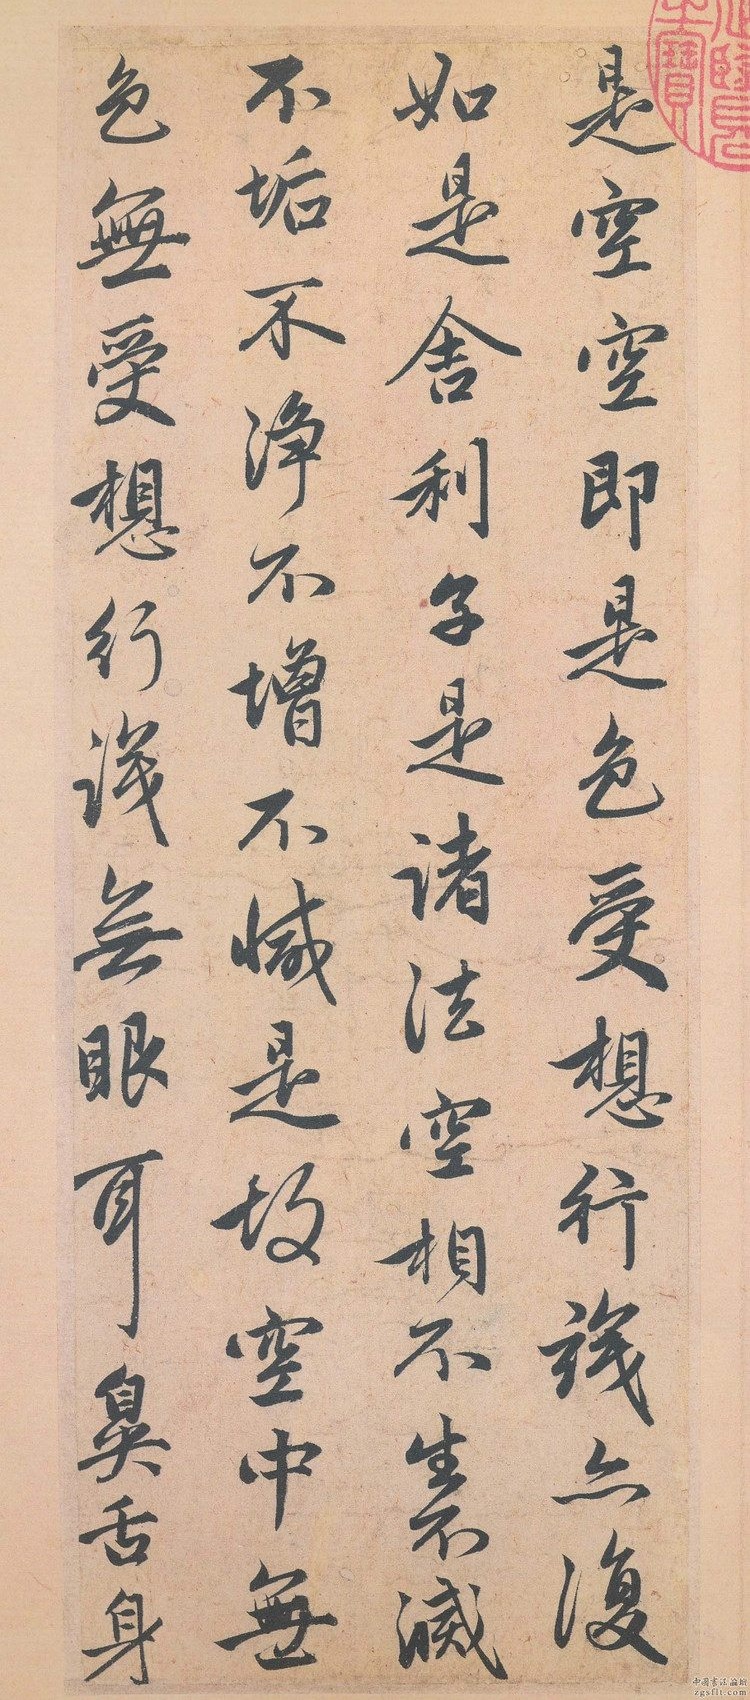 是空空即是色受想行識亦復
如是舍利子是諸法空相不生不滅
不垢不淨不增不減是故空中無
色無受想行識無眼耳鼻舌身
中國書法論壇
zgsflt.com